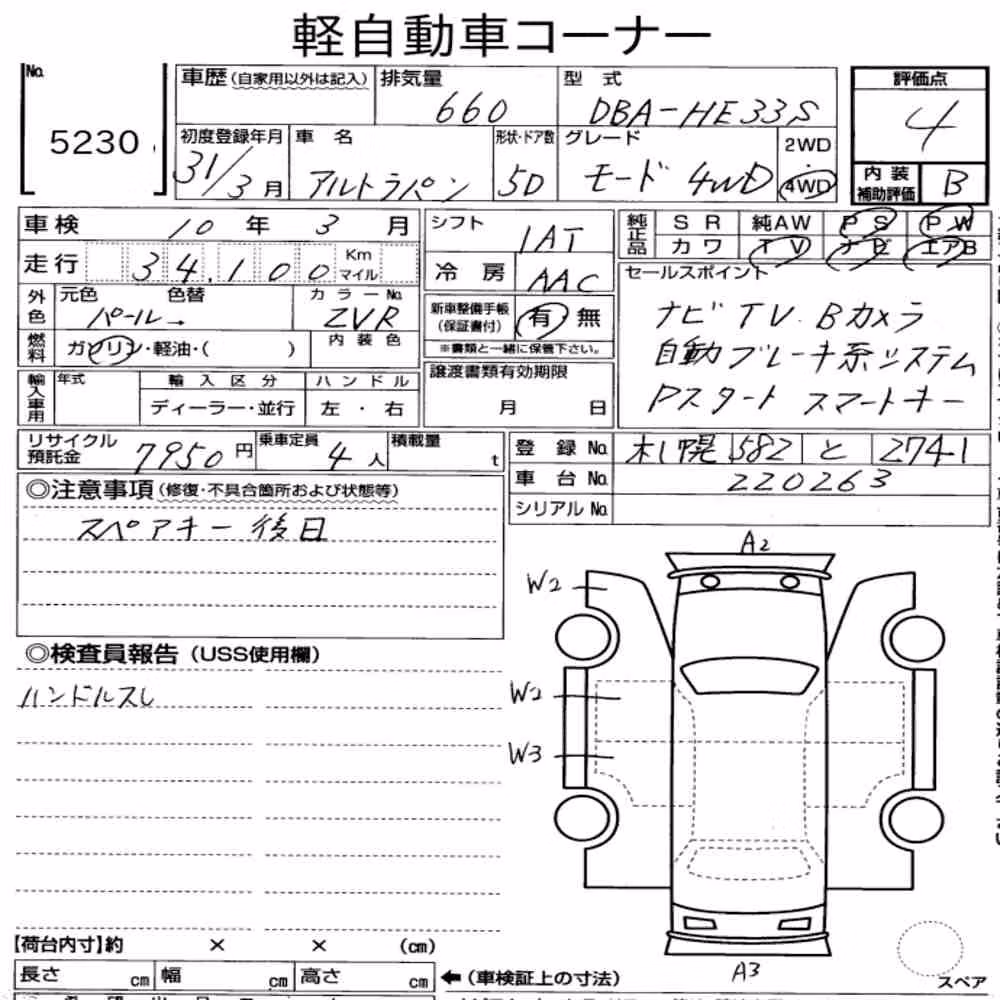 軽自動車コーナー
No. 5230
車歴(自家用以外は記入) 排気量 660 型式 DBA-HE33S
評価点 4
初度登録年月 31/3月 車名 アルトラパン 形状・ドア数 5D グレード モード 4WD 2WD 4WD
内装補助評価 B
車検 10年 3月 シフト 1AT 純正品 SR 純AW PS PW
カワ TV ナビ エアB
走行 34,100 Km マイル 冷房 AAC
セールスポイント
外色 元色 色替 カラーNo. パール→ ZVR
新車整備手帳(保証書付) 有 無
※書類と一緒に保管下さい。
ナビ TV. Bカメラ
燃料 ガソリン・軽油・( ) 内装色
自動ブレーキ系システム
譲渡書類有効期限
Pスタート スマートキー
輸入車用 年式 輸入区分 ハンドル
ディーラー・並行 左・右
月 日
リサイクル預託金 7950円 乗車定員 4人 積載量 t
登録No. 札幌 582 と 2741
車台No. 220263
シリアルNo.
◎注意事項(修復・不具合箇所および状態等)
スペアキー 後日
◎検査員報告(USS使用欄)
ハンドルスレ
A2
W2
W2
W3
A3
スペア
【荷台内寸】約 × × (cm)
長さ cm 幅 cm 高さ cm ←(車検証上の寸法)